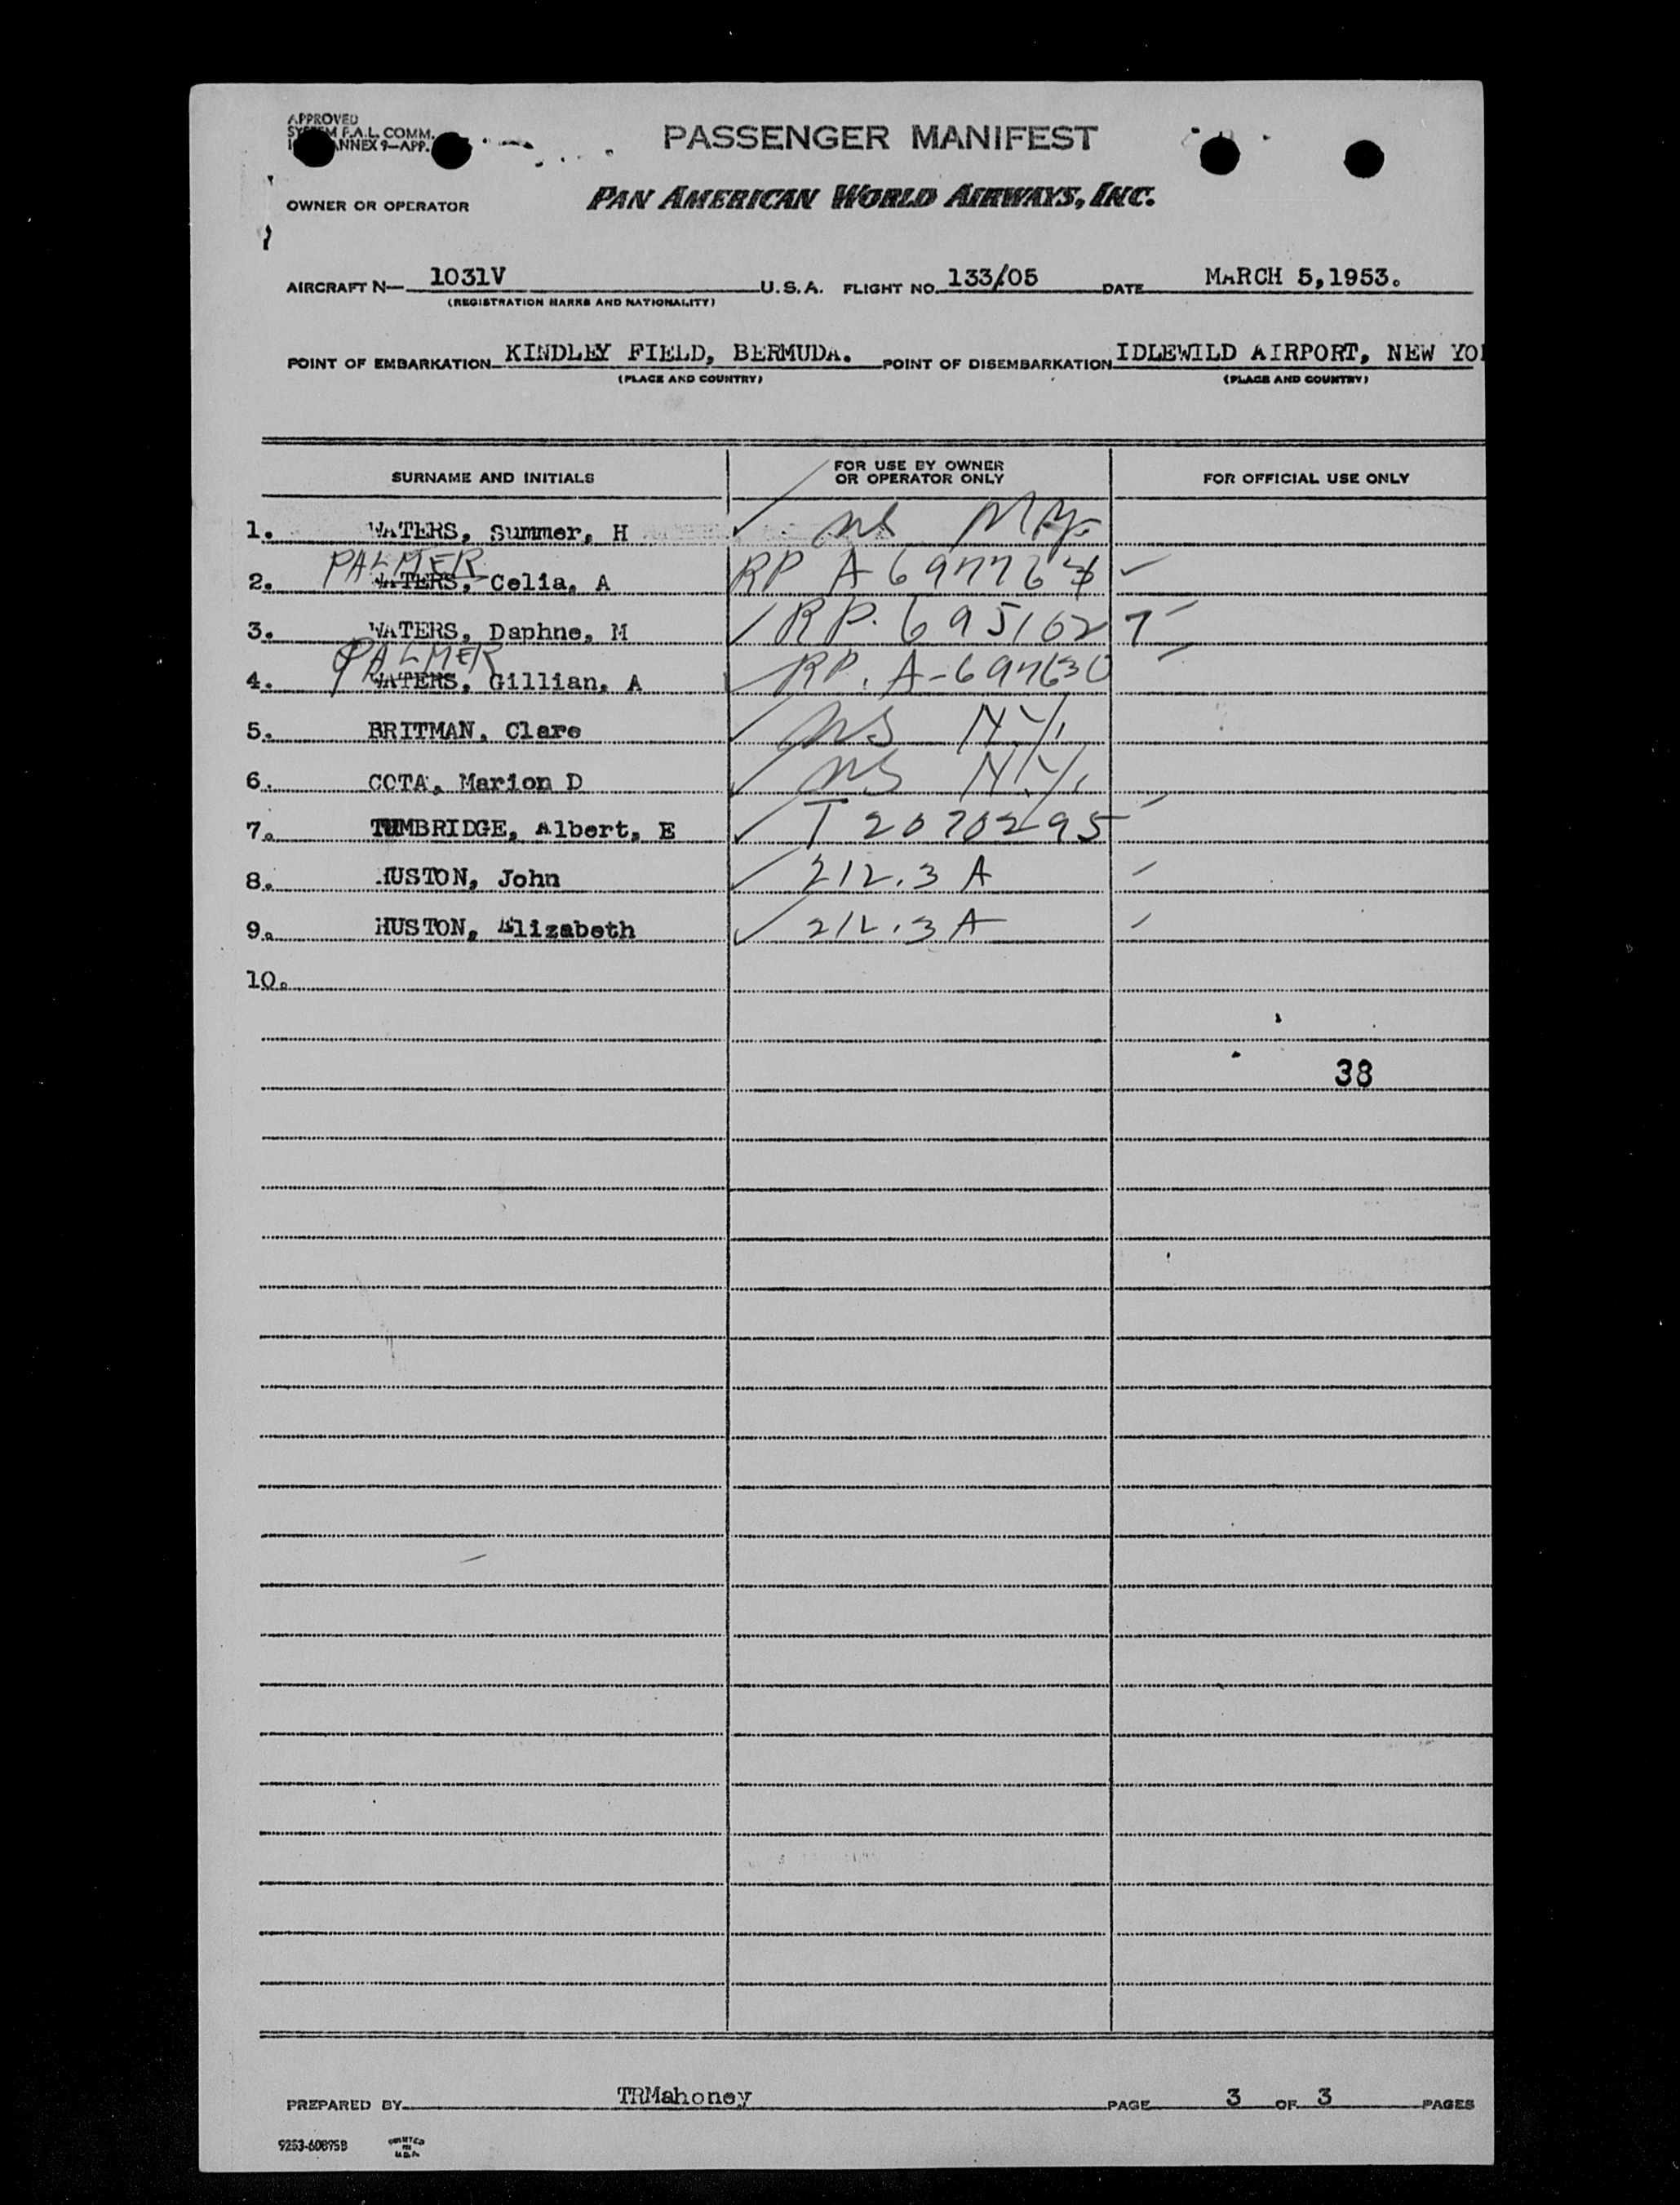 APPROVED
M F.A.L. COMM.
ANNEX 9—APP.
PASSENGER MANIFEST
OWNER OR OPERATOR PAN AMERICAN WORLD AIRWAYS, INC.
AIRCRAFT N— 1031V U.S.A. FLIGHT NO. 133/05 DATE MARCH 5,1953.
(REGISTRATION MARKS AND NATIONALITY)
POINT OF EMBARKATION KINDLEY FIELD, BERMUDA. POINT OF DISEMBARKATION IDLEWILD AIRPORT, NEW YO
(PLACE AND COUNTRY) (PLACE AND COUNTRY)
SURNAME AND INITIALS FOR USE BY OWNER OR OPERATOR ONLY FOR OFFICIAL USE ONLY
1. WATERS, Summer, H
PALMER
2. WATERS, Celia, A RP A
3. WATERS, Daphne, M RP. 695162 7
PALMER
4. WATERS, Gillian, A RP. A-697630
5. BRITMAN, Clare NY.
6. COTA, Marion D NY.
7. TUMBRIDGE, Albert, E T 2070295
8. HUSTON, John 212.3 A
9. HUSTON, Elizabeth 212.3 A
10.
38
PREPARED BY TRMahoney PAGE 3 OF 3 PAGES
9253-60895B PRINTED IN U.S.A.